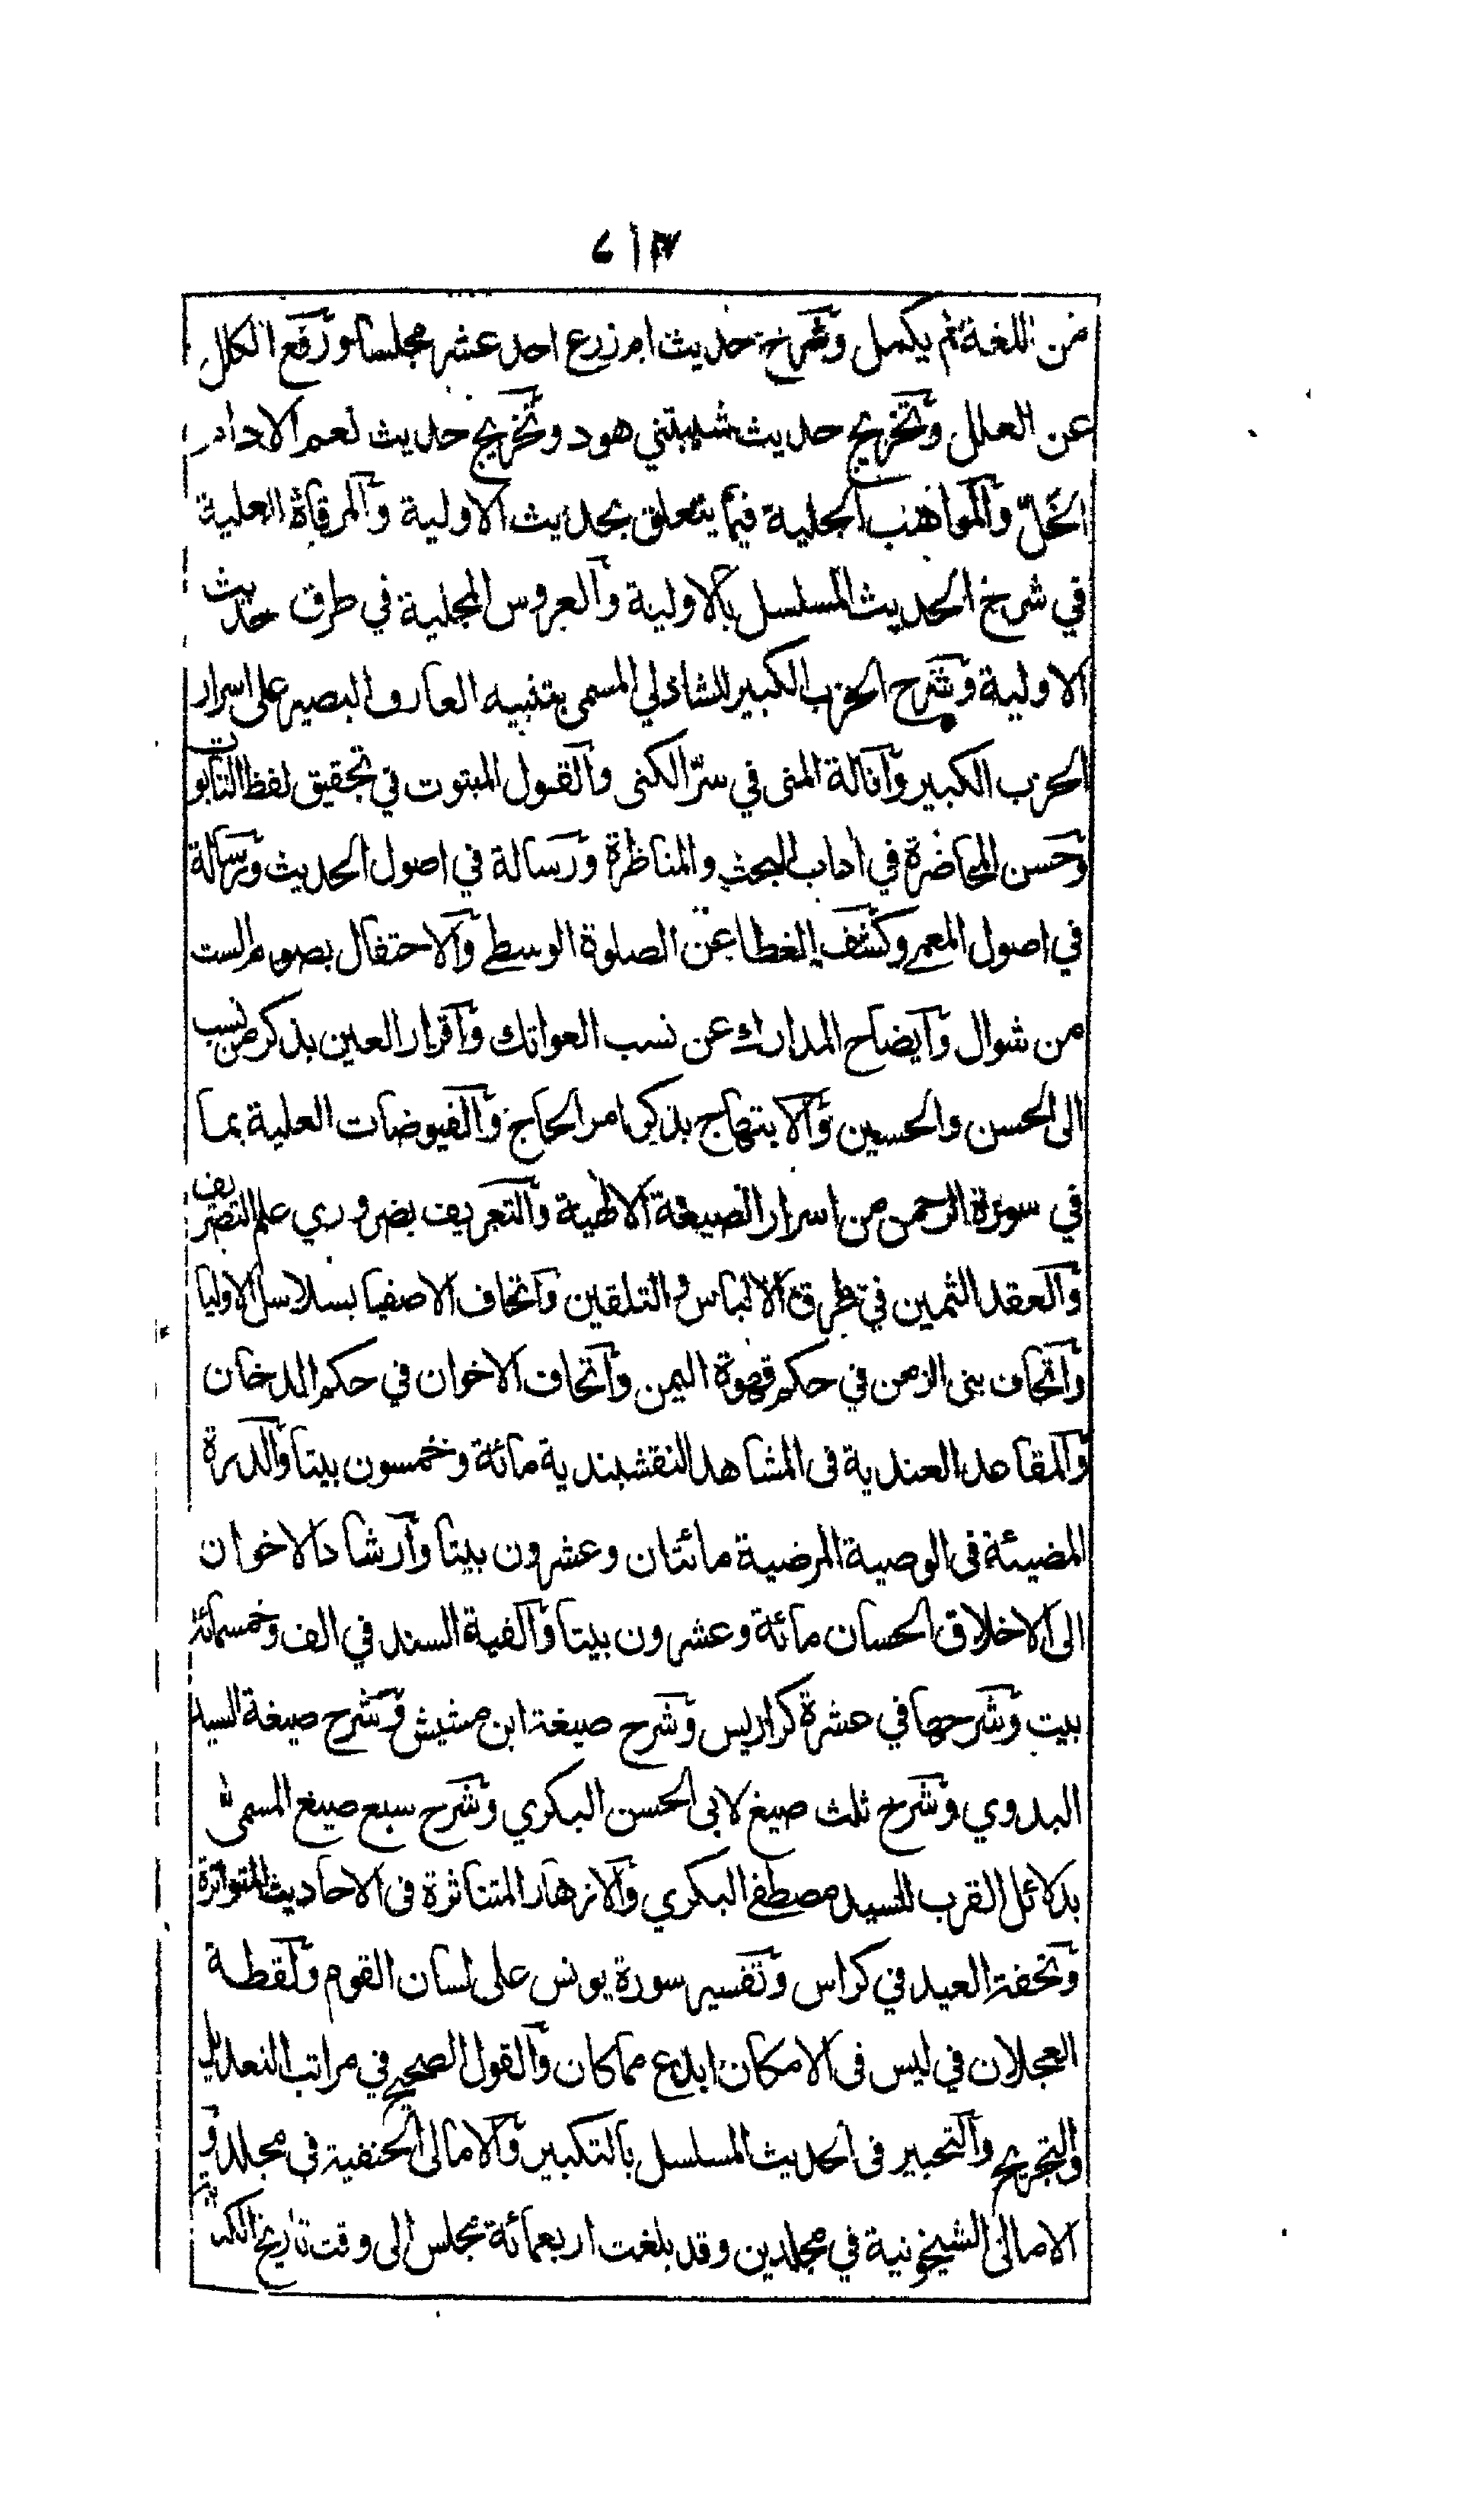 ٧١٧
من اللغة لم يكمل وشرح حديث ام زرع احد عشر مجلسا ورفع الكلل
عن العلل وتخريج حديث شيبتني هود وتخريج حديث نعم الادام
الخل والمواهب الجلية فيما يتعلق بحديث الاولية والمرقاة العلية
في شرح الحديث المسلسل بالاولية والعروس المجلية في طرق حديث
الاولية وشرح الحزب الكبير للشاذلي المسمى بتنبيه العارف البصير على اسرار
الحزب الكبير وانالة المنى في سرّ الكنى والقول المبتوت في تحقيق لفظ التابوت
وحسن المحاضرة في اداب البحث والمناظرة ورسالة في اصول الحديث ورسالة
في اصول المعمى وكشف الغطا عن الصلوة الوسطى والاحتفال بصوم الست
من شوال وايضاح المدارك عن نسب العواتك واقرار العين بذكر من نسب
الى الحسن والحسين والابتهاج بذكر امر الحاج والفيوضات العلية بما
في سورة الرحمن من اسرار الصيغة الالهية والتعريف بضروري علم التصريف
والعقد الثمين في طرق الالباس والتلقين واتحاف الاصفيا بسلاسل الاوليا
واتحاف بنى الزمن في حكم قهوة اليمن واتحاف الاخوان في حكم الدخان
والمقاعد العندية فى المشاهد النقشبندية مائة وخمسون بيتا والدرة
المضيئة فى الوصية المرضية مائتان وعشرون بيتا وارشاد الاخوان
الى الاخلاق الحسان مائة وعشرون بيتا والفية السند في الف وخمسمائة
بيت وشرحها في عشرة كراريس وشرح صيغة ابن مشيش وشرح صيغة السيد
البدوي وشرح ثلث صيغ لابى الحسن البكري وشرح سبع صيغ المسمى
بدلائل القرب للسيد مصطفى البكري والازهار المتناثرة فى الاحاديث المتواترة
وتحفة العيد في كراس وتفسير سورة يونس على لسان القوم ولقطة
العجلان في ليس فى الامكان ابدع مما كان والقول الصحيح في مراتب التعديل
والتجريح والتحبير فى الحديث المسلسل بالتكبير والامالى الحنفية في مجلد و
الامالى الشيخونية في مجلدين وقد بلغت اربعمائة مجلس الى وقت تاريخ